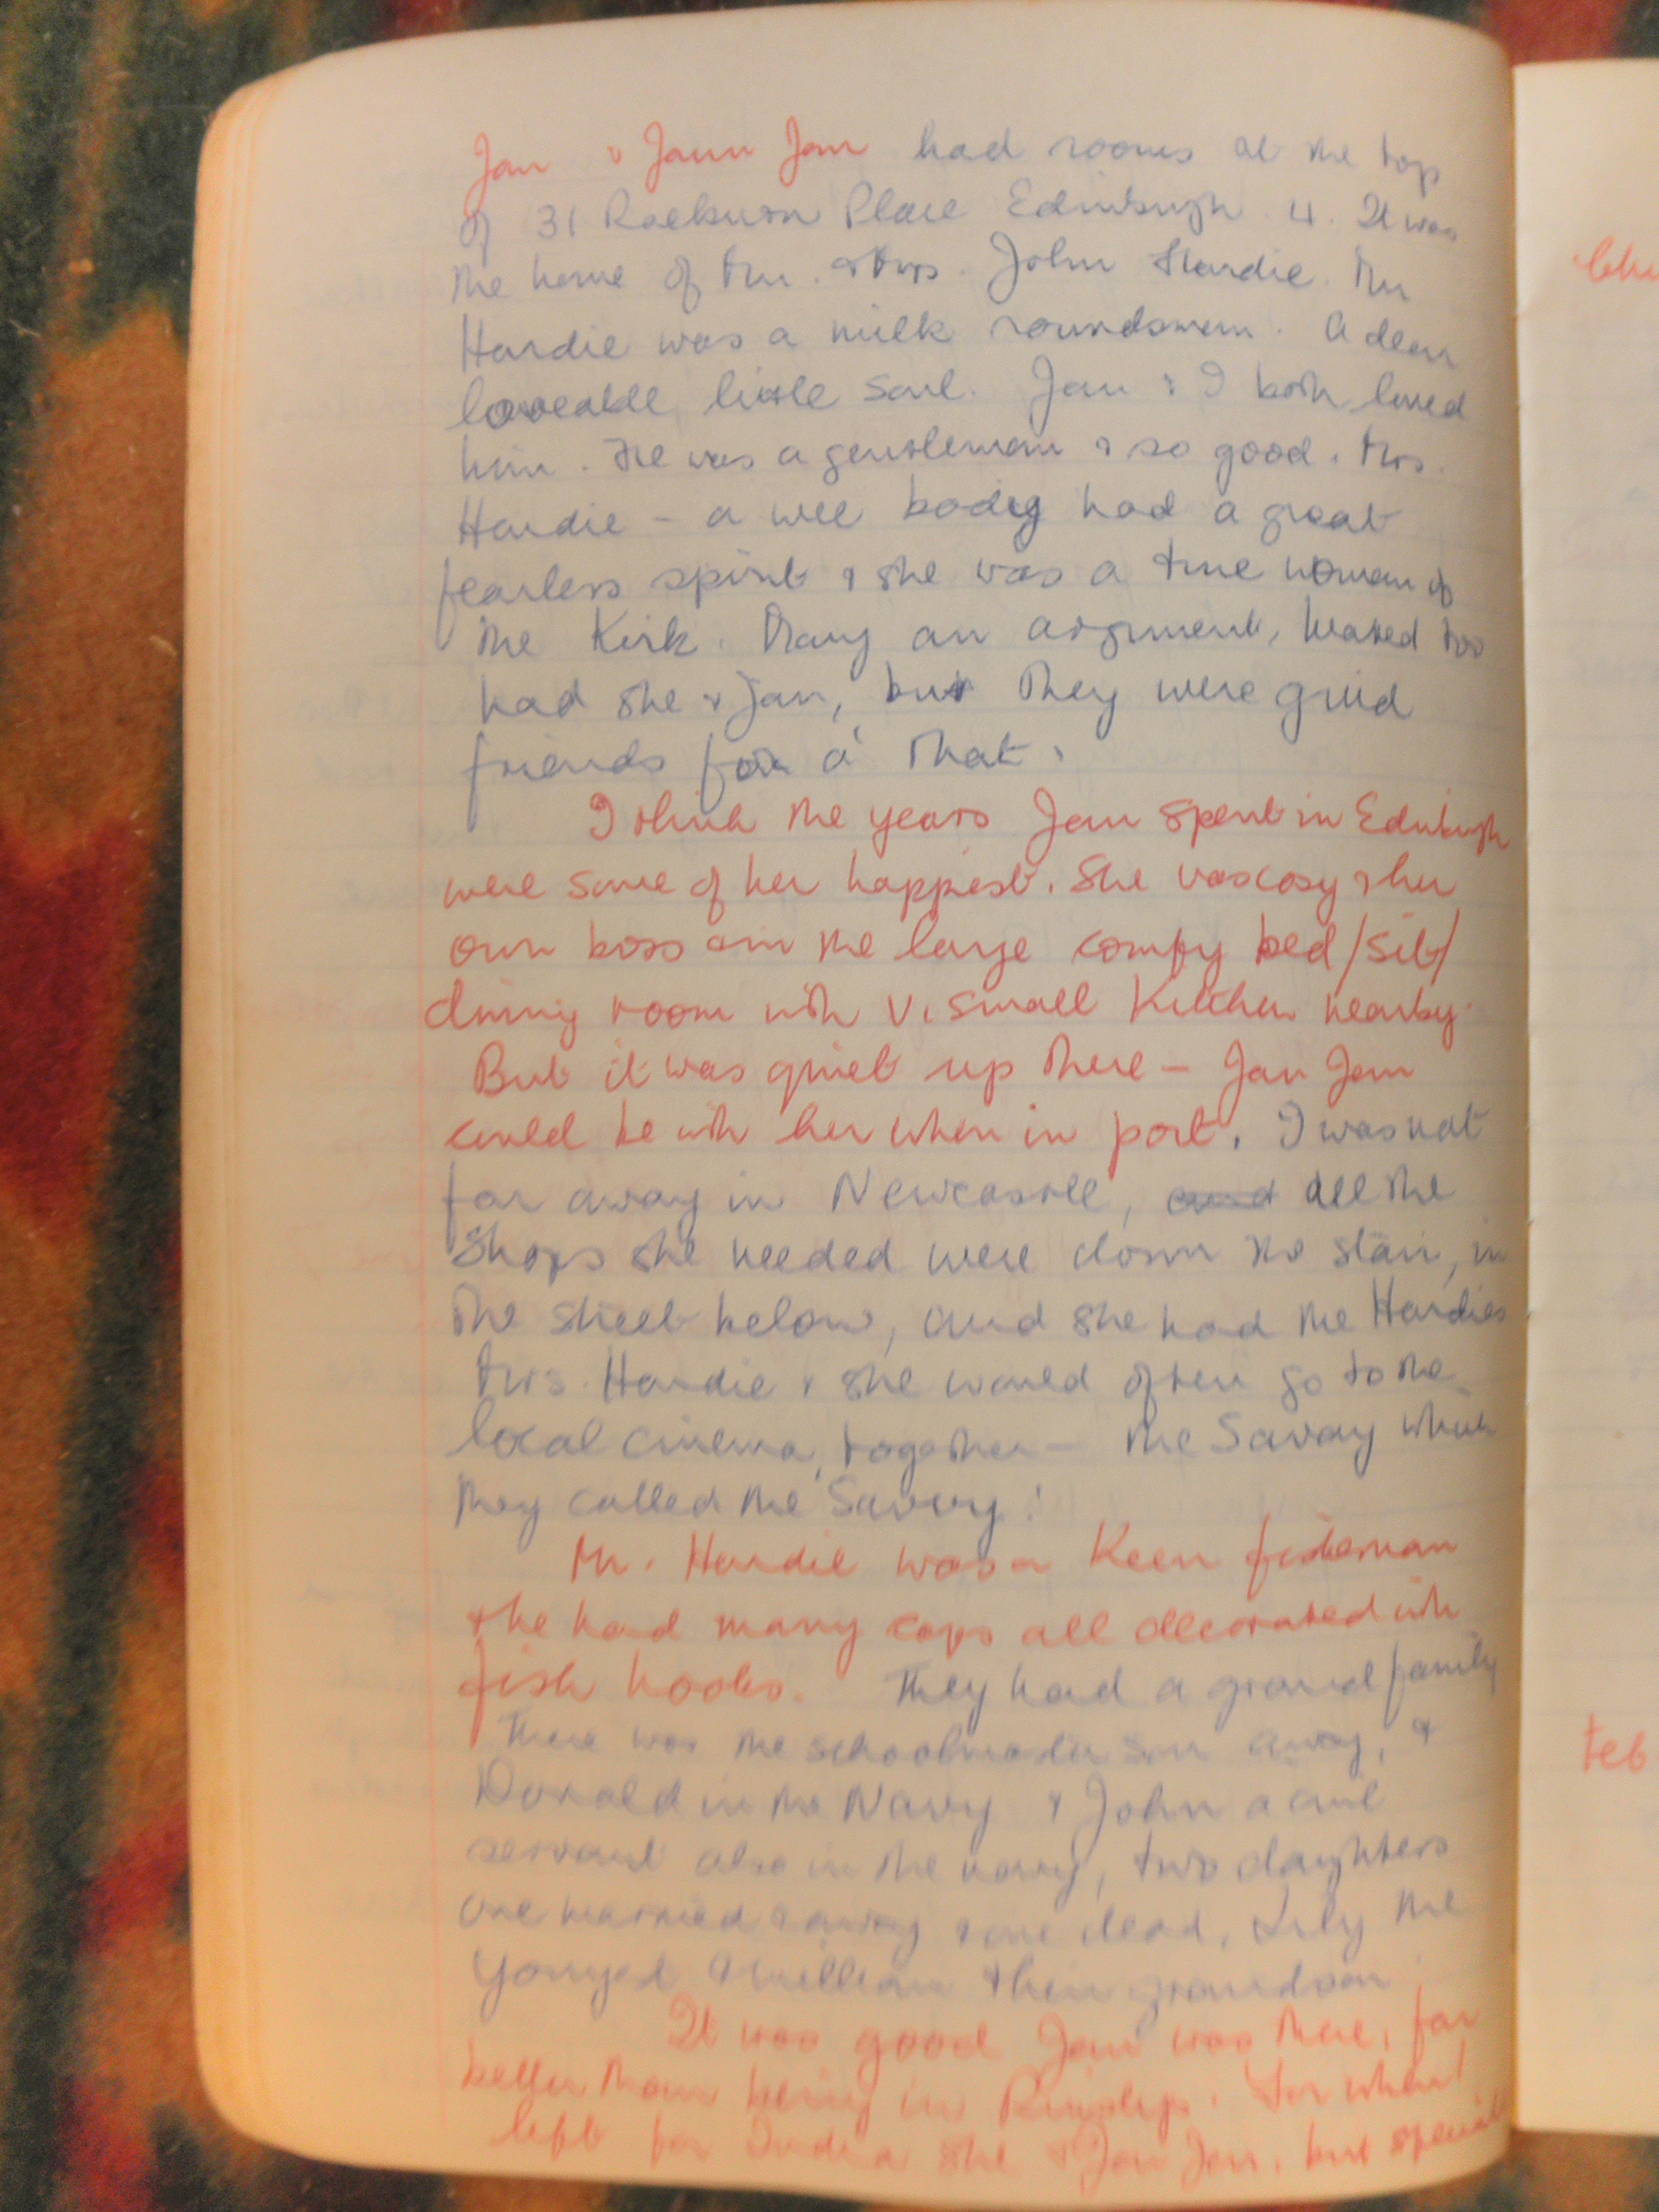 Jan & Jann Jam had rooms at the top
of 31 Raeburn Place Edinburgh 4. It was
the home of Mr. & Mrs. John Hardie. Mr
Hardie was a milk roundsman. A dear
loveable little soul. Jan & I both loved
him. He was a gentleman & so good. Mrs.
Hardie - a wee body had a great
fearless spirit & she was a true woman of
the Kirk. Many an argument, heated too
had she & Jan, but they were guid
friends for a' that.
I think the years Jan spent in Edinburgh
were some of her happiest. She was cosy & her
own boss in the large comfy bed/sit/
dining room with v. small kitchen nearby.
But it was quiet up there - Jan Jam
could be with her when in port. I was not
far away in Newcastle, and all the
shops she needed were down the stair, in
the street below, and she had the Hardies
Mrs. Hardie & she would often go to the
local cinema, together - the Savoy which
they called the Savvy!
Mr. Hardie was a keen fisherman
& he had many caps all decorated with
fish hooks. They had a grand family
There was the schoolmaster son away, &
Donald in the Navy & John a civil
servant also in the navy, two daughters
one married & away & one dead, Lily the
youngest & William their grandson
It was good Jan was there, far
better than being in Ruislip. For when I
left for India she & Jan Jam, but